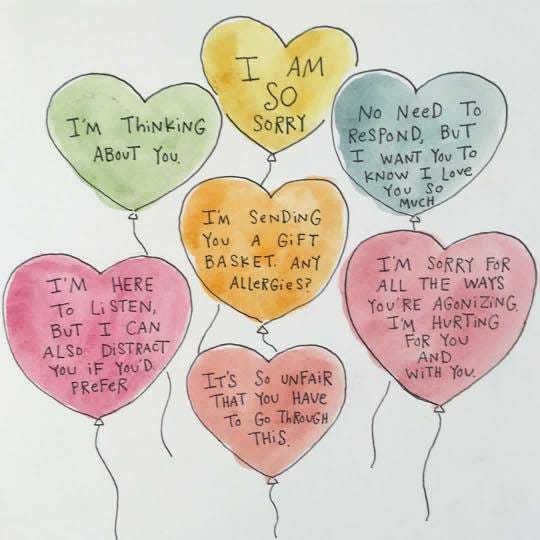 I AM
SO
SORRY
I'M THiNKiNG
ABOUT YOU.
NO NeeD TO
ReSPOND, BUT
I WANT YOU TO
KNOW I LOVe
YOU SO
MUCH
I'M SeNDiNG
YOU A GiFT
BASKET. ANY
ALLeRGieS?
I'M HERE
TO LiSTEN,
BUT I CAN
ALSO DiSTRACT
YOU iF YOU'D
PReFeR
I'M SORRY FOR
ALL THE WAYS
YOU'RE AGONiZiNG.
I'M HURTiNG
FOR YOU
AND
WiTH YOU.
IT'S SO UNFAiR
THAT YOU HAVe
TO GO THROUGH
THiS.